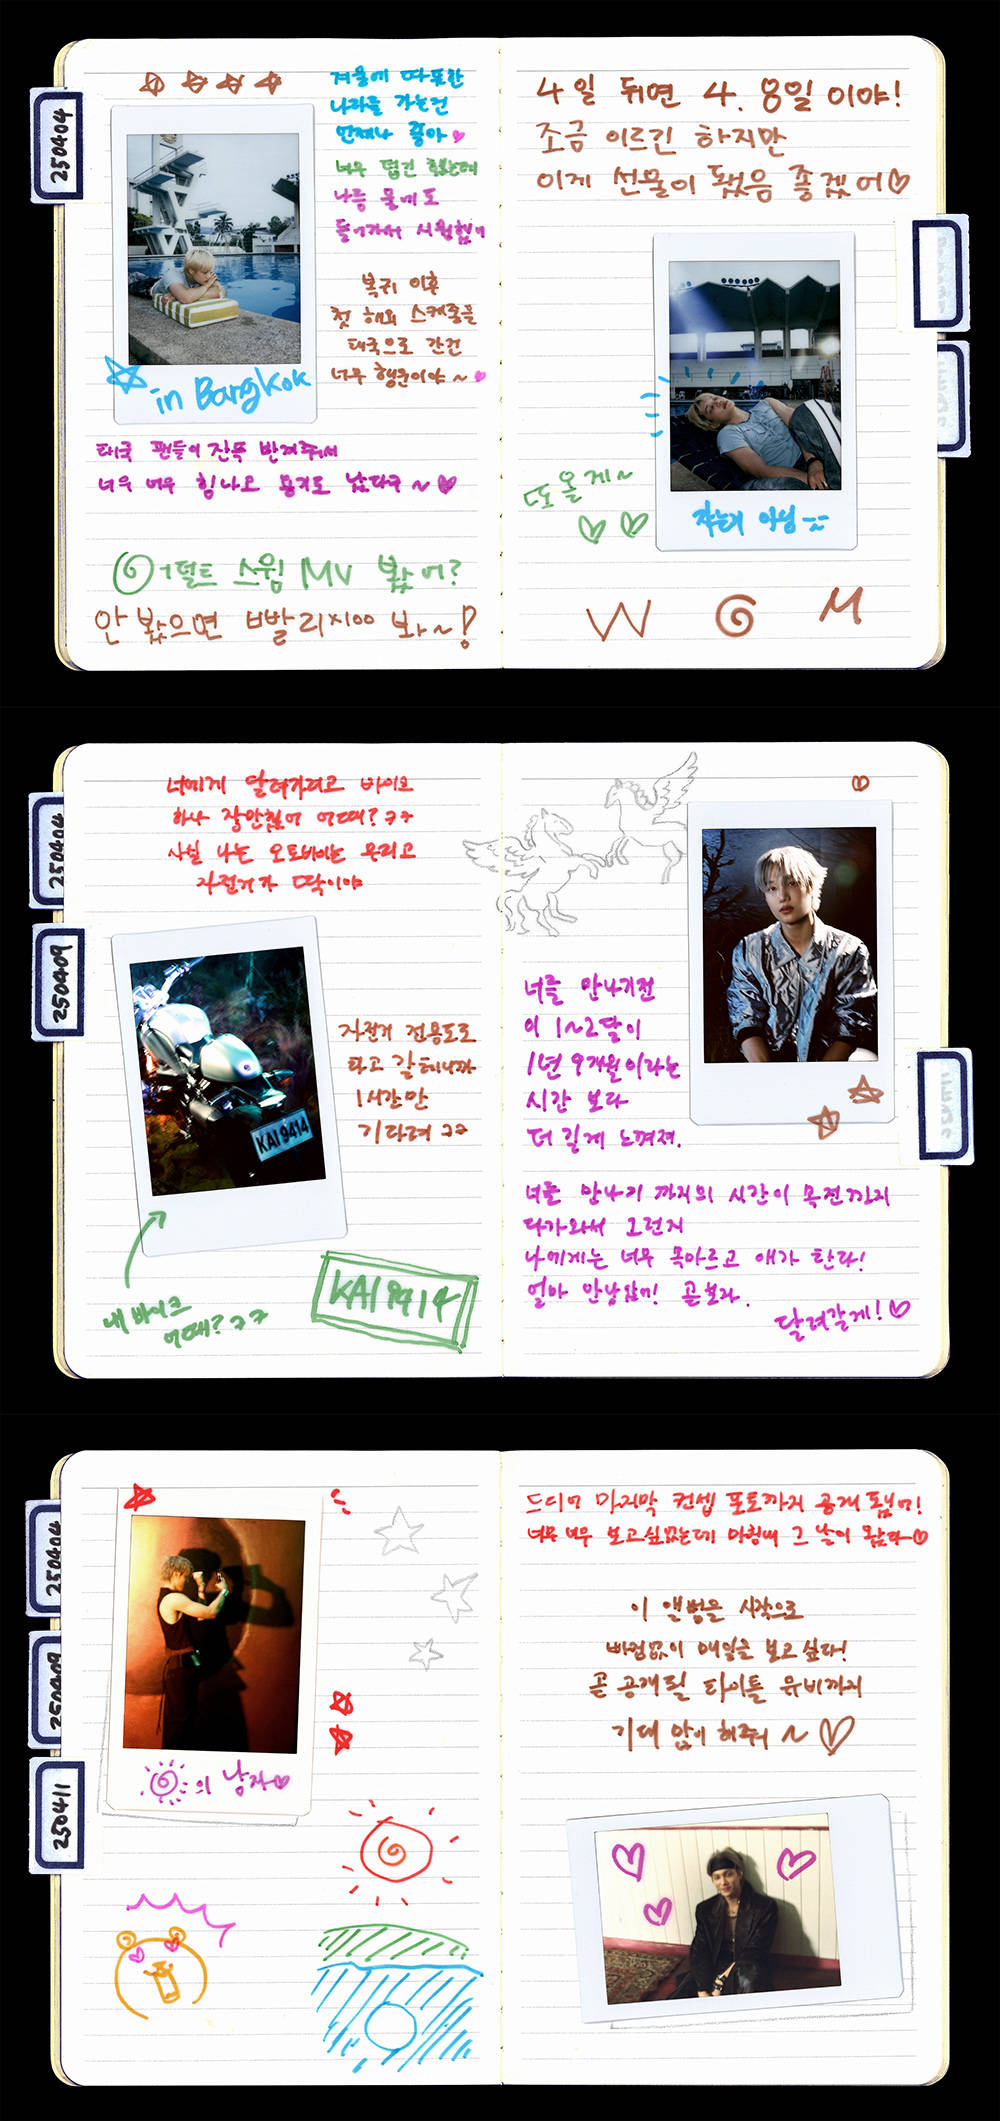 250404
겨울에 따뜻한
나라를 가는건
언제나 좋아
너무 덥긴 했는데
나름 물에도
들어가서 시원했어
복귀 이후
첫 해외 스케줄을
태국으로 간건
너무 행운이야 ~
in Bangkok
태국 팬들이 잔뜩 반겨주셔
너무 너무 힘나고 용기도 났다구 ~
어덜트 스윔 MV 봤어?
안 봤으면 빨리 봐~!
4일 뒤면 4. 8일 이야!
조금 이르긴 하지만
이게 선물이 됐음 좋겠어
또 올게~
자는거 아님
W M
250404
250409
너에게 달려가려고 바이크
하나 장만했어 어때? ㅋㅋ
사실 나는 오토바이는 무리고
자전거가 딱이야
자전거 전용도로
타고 갈테니까
1시간만
기다려 ㅋㅋ
KAI 9414
내 바이크
어때? ㅋㅋ
KAI 9414
너를 만나기전
이 1~2달이
1년 9개월이라는
시간 보다
더 길게 느껴져.
너를 만나기 까지의 시간이 목전까지
다가와서 그런지
나에게는 너무 목마르고 애가 탄다!
얼마 안남았어! 곧 보자.
달려갈게!
250404
250409
250411
의 남자
드디어 마지막 컨셉 포토까지 공개 됐어!
너무 너무 보고싶었는데 마침내 그 날이 왔다
이 앨범을 시작으로
빠짐없이 매일을 보고 싶다!
곧 공개될 타이틀 뮤비까지
기대 많이 해줘 ~